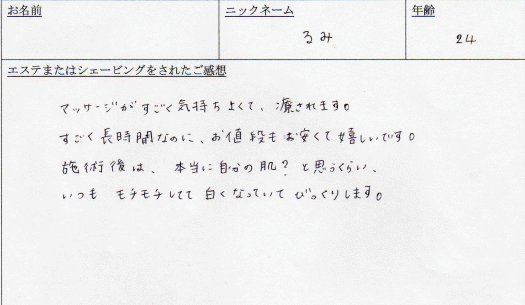 お名前 ニックネーム 年齢
るみ 24
エステまたはシェービングをされたご感想
マッサージがすごく気持ちよくて、癒されます。
すごく長時間なのに、お値段もお安くて嬉しいです。
施術後は、本当に自分の肌?と思うくらい、
いつも モチモチしてて 白くなっていて びっくりします。